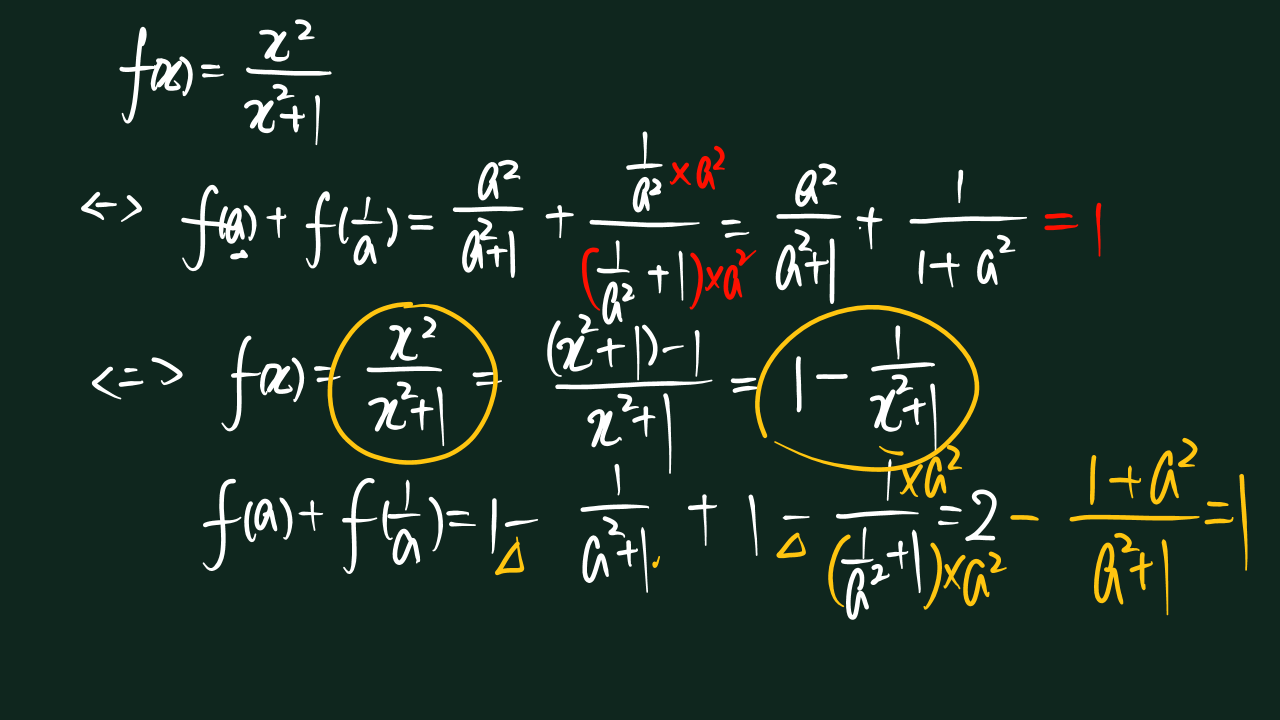 f(x) = x²/(x²+1)
<-> f(a) + f(1/a) = a²/(a²+1) + (1/a² × a²)/((1/a² + 1) × a²) = a²/(a²+1) + 1/(1+a²) = 1
<=> f(x) = x²/(x²+1) = ((x²+1)-1)/(x²+1) = 1 - 1/(x²+1)
f(a) + f(1/a) = 1 - 1/(a²+1) + 1 - (1 × a²)/((1/a² + 1) × a²) = 2 - (1+a²)/(a²+1) = 1